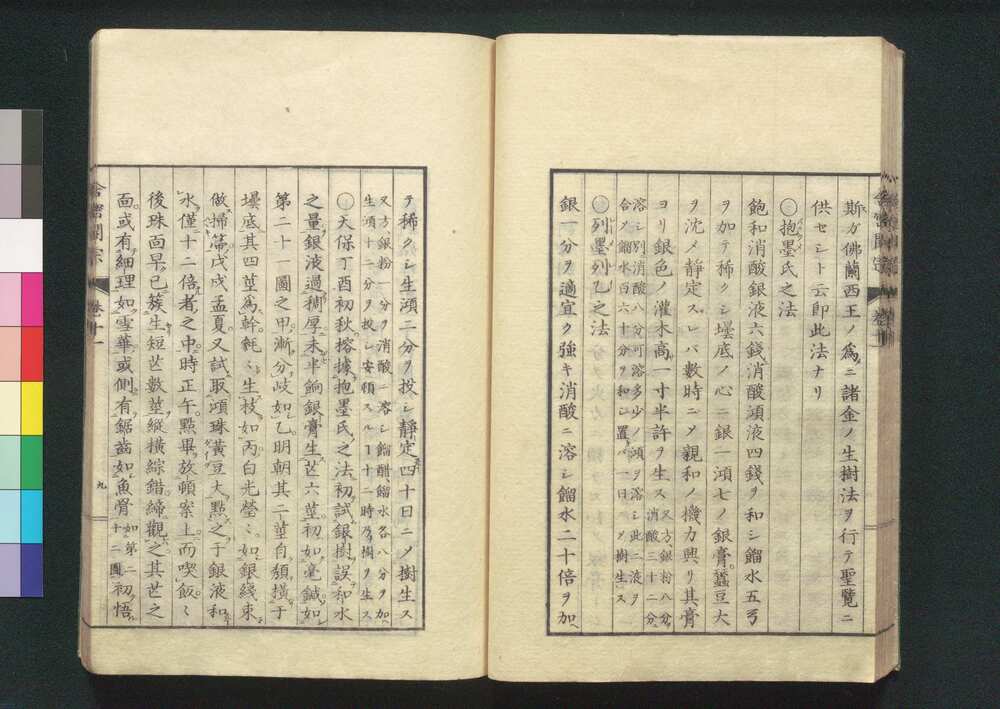 斯ガ佛蘭西王ノ爲ニ諸金ノ生樹法ヲ行テ聖覽ニ
供セシト云即此法ナリ
○抱墨氏之法
飽和消酸銀液六錢消酸澒液四錢ヲ和シ餾水五弓
ヲ加テ稀クシ壜底ノ心ニ銀一澒七ノ銀膏蠶豆大
ヲ沈メ靜定スレバ數時ニ〆親和ノ機力興リ其膏
ヨリ銀色ノ灌木高一寸半許ヲ生ス 又方銀粉八分ヲ消酸三十二分ニ
溶シ別消酸八分ニ可溶多少ノ澒ヲ溶シ此二液ヲ
合ノ餾水百六十分ヲ和シ置バ一日ニ〆樹生ス
○列墨列乙之法
銀一分ヲ適宜ク強キ消酸ニ溶シ餾水二十倍ヲ加
テ稀クシ生澒二分ヲ投シ靜定四十日ニノ樹生ス
又方銀粉一分ヲ消酸ニ溶シ餾醋餾水各八分ヲ加
生澒十二分ヲ投シ安頓スルヿ十二時乃樹ヲ生ス
○天保丁酉初秋榕據抱墨氏之法初試銀樹誤和水
之量銀液過稠厚未半餉銀膏生芒六莖初如毫鍼如
第二十一圖之甲漸分岐如乙明朝其二莖自頽横于
壜底其四莖爲幹毿〻生枝如丙白光瑩〻如銀綫束
做掃箒戊戌孟夏又試取澒珠黃豆大點之于銀液和
水僅十二倍者之中時正午點畢放頓案上而喫飯〻
後珠面早已簇生短芒數莖縱横綜錯締觀之其芒之
面或有細理如雪華或側有鋸齒如魚骨 如第二十二圖 初悟
舍密開宗
卷十一
九